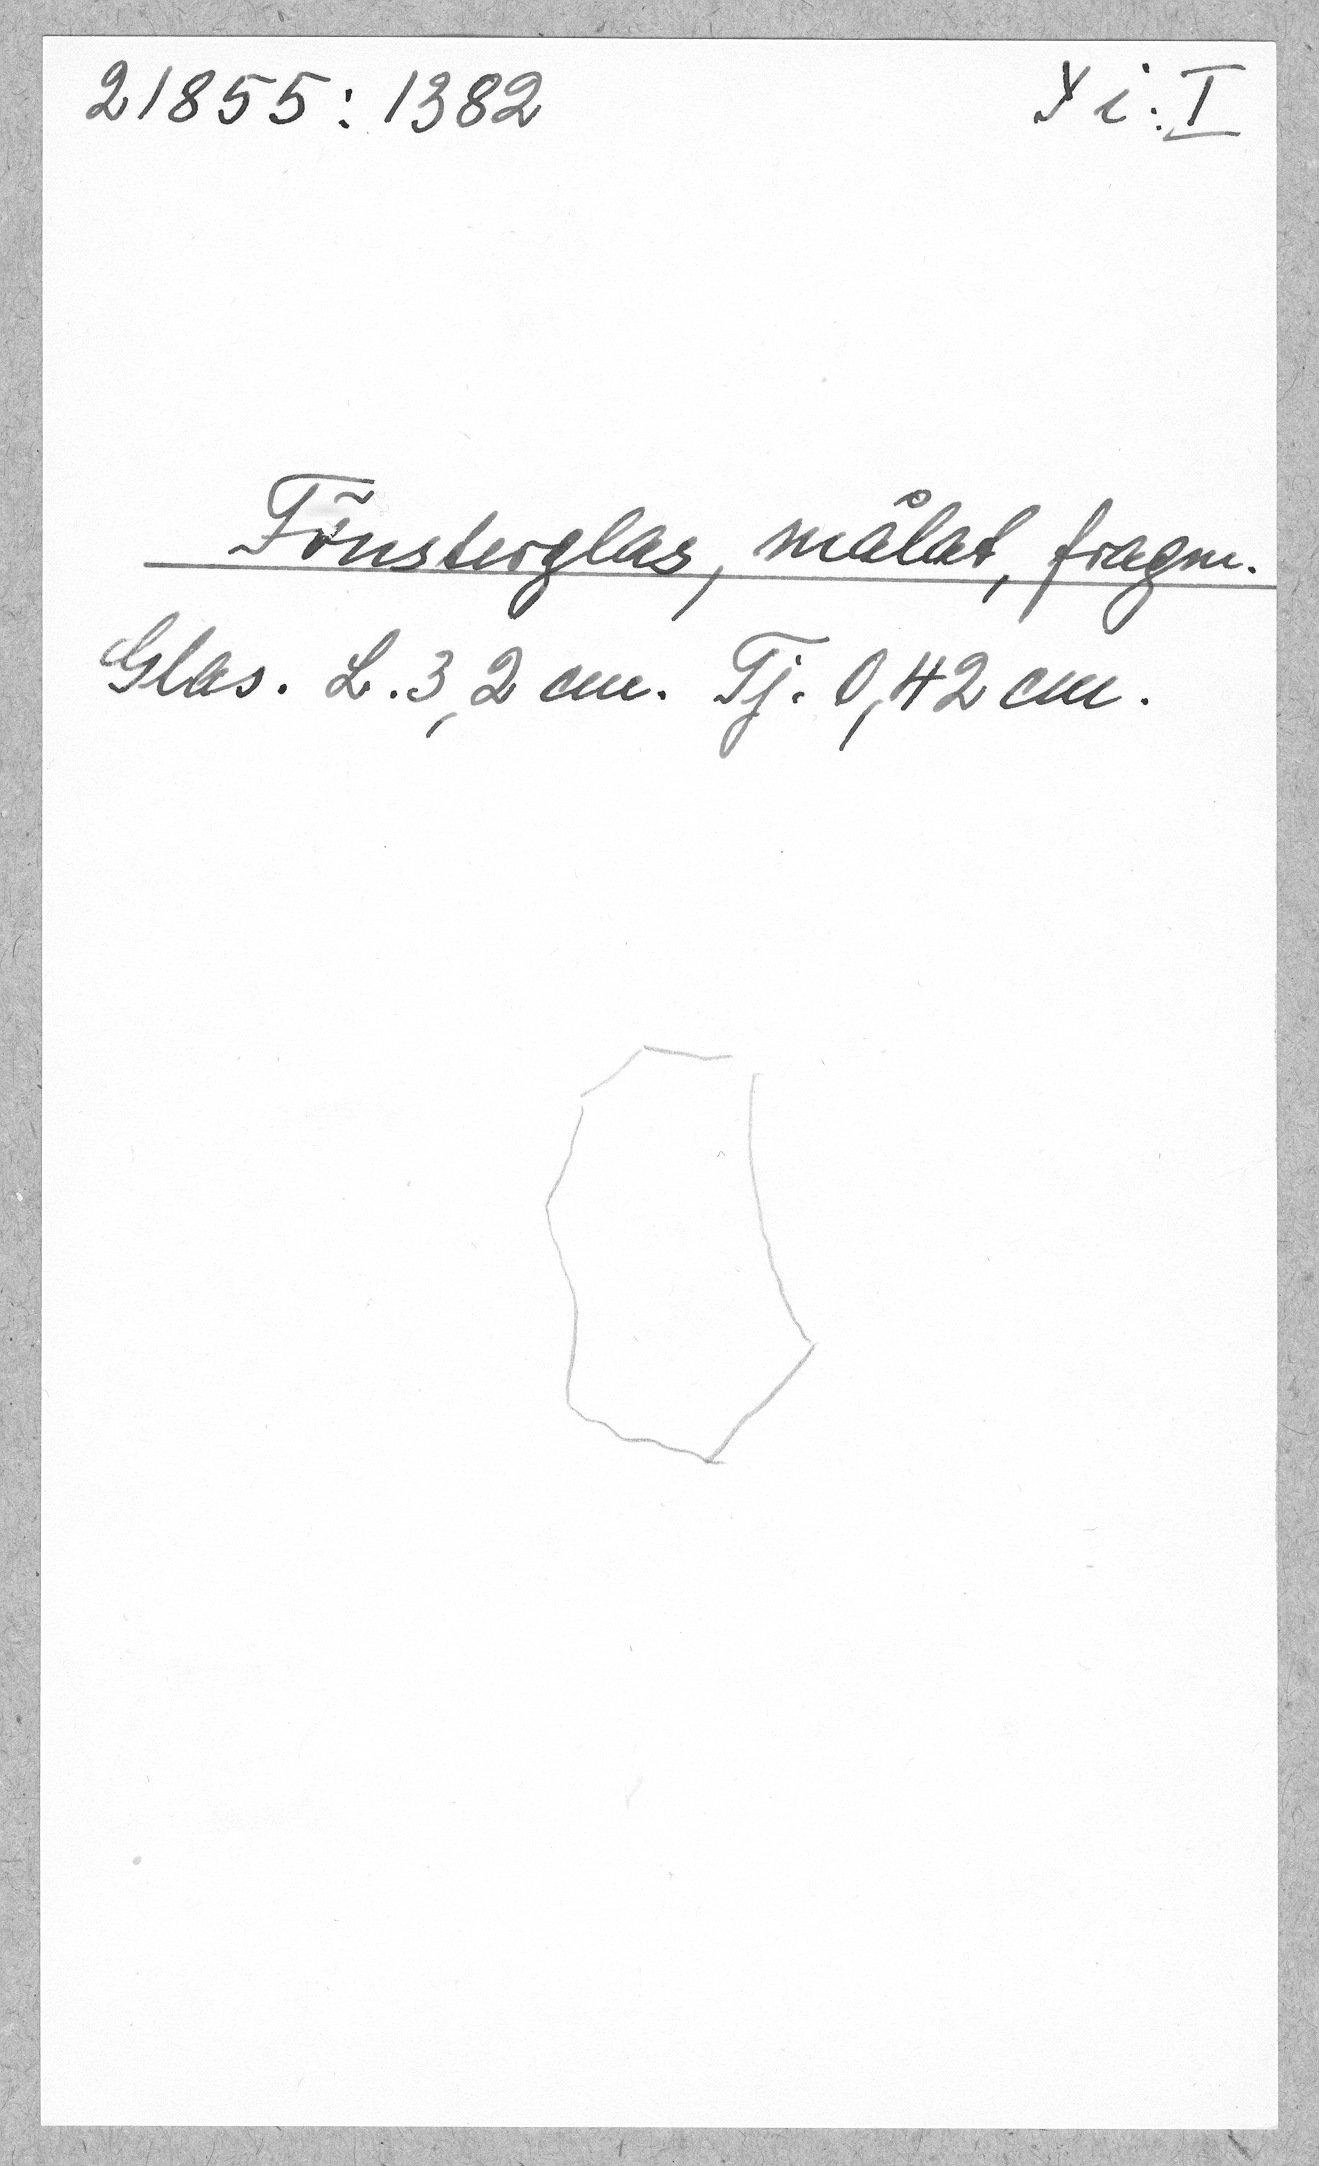 21855:1382
X i:I
Fönsterglas, målat, fragm.
Glas. L. 3,2 cm. Tj. 0,42 cm.